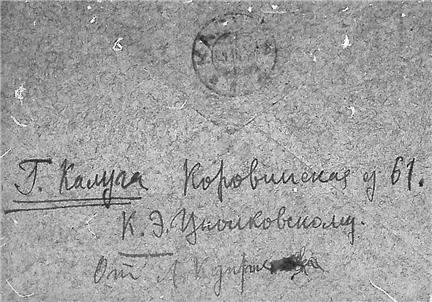 Г. Калуга Коровинская ул 61.
К. Э. Циолковскому.
От А